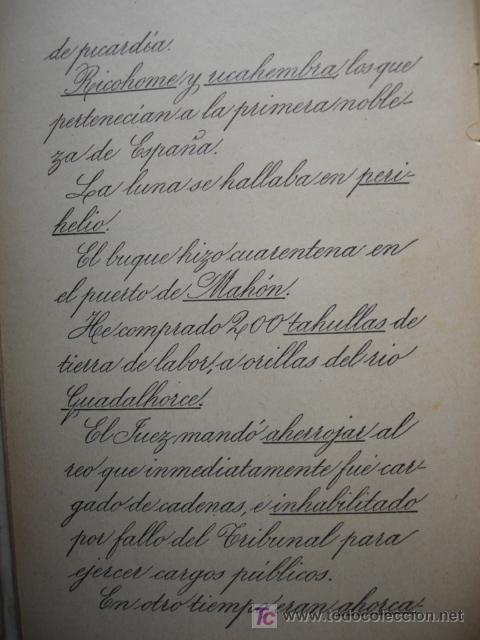 de picardía.
Ricohome y ricahembra, los que
pertenecían a la primera noble-
za de España.
La luna se hallaba en peri-
helio.
El buque hizo cuarentena en
el puerto de Mahón.
He comprado 200 tahullas de
tierra de labor, a orillas del rio
Guadalhorce.
El Juez mandó aherrojar al
reo que inmediatamente fué car-
gado de cadenas, e inhabilitado
por fallo del Tribunal para
ejercer cargos públicos.
En otro tiempo eran ahorca-
todocoleccion.net